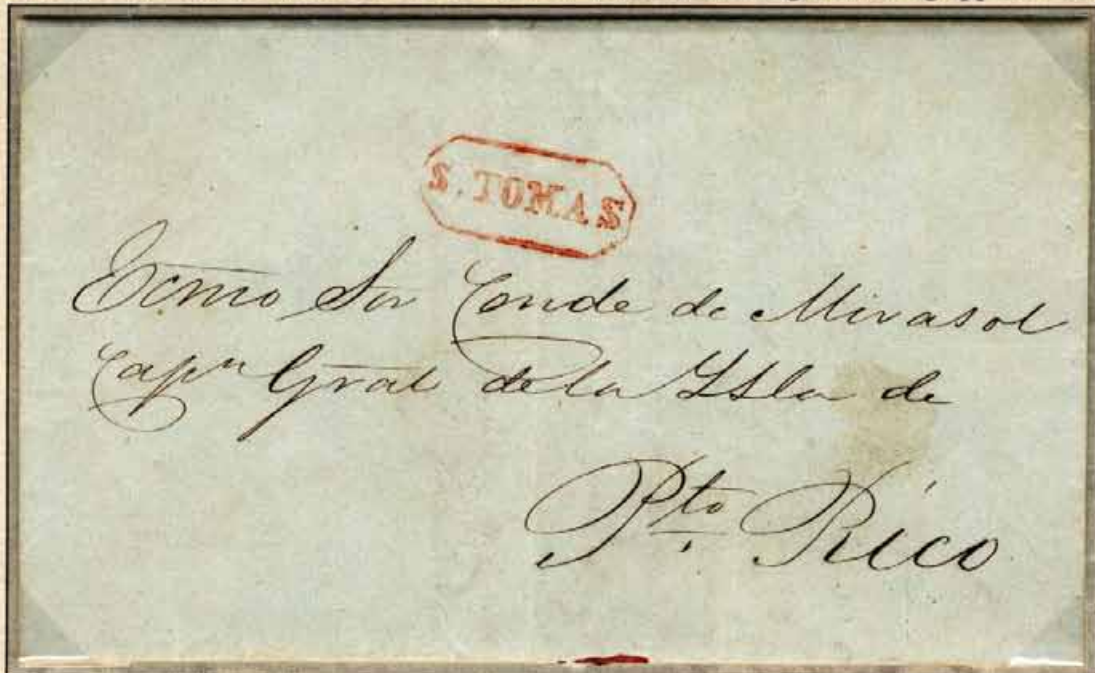 S. TOMAS
Ecmo Sor Conde de Mirasol
Capn Gral de la Ysla de
Pto Rico